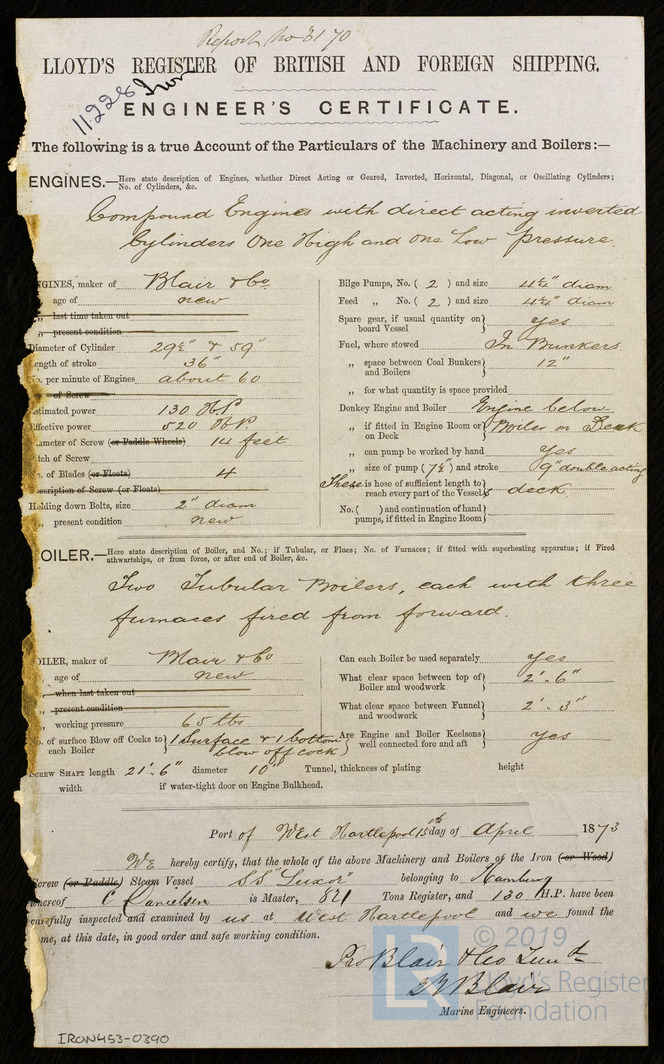 Report No 6170
LLOYD'S REGISTER OF BRITISH AND FOREIGN SHIPPING.
11228 Iron
ENGINEER'S CERTIFICATE.
The following is a true Account of the Particulars of the Machinery and Boilers:—
ENGINES.—Here state description of Engines, whether Direct Acting or Geared, Inverted, Horizontal, Diagonal, or Oscillating Cylinders;
No. of Cylinders, &c.
Compound Engines with direct acting inverted
Cylinders One High and One Low pressure.
NGINES, maker of Blair & Co
„ age of new
„ last time taken out
„ present condition
Diameter of Cylinder 29½" & 59"
ength of stroke 36"
o. per minute of Engines about 60
of Screw
stimated power 130 HP
ffective power 520 HP
iameter of Screw (or Paddle Wheels) 14 feet
itch of Screw
o. of Blades (or Floats) 4
escription of Screw (or Floats)
Holding down Bolts, size 2" diam
„ present condition new
Bilge Pumps, No. ( 2 ) and size 4¼" diam
Feed „ No. ( 2 ) and size 4¼" diam
Spare gear, if usual quantity on board Vessel } yes
Fuel, where stowed In Bunkers
„ space between Coal Bunkers and Boilers } 12"
„ for what quantity is space provided
Donkey Engine and Boiler Engine below
„ if fitted in Engine Room or on Deck } Boiler on Deck
„ can pump be worked by hand Yes
„ size of pump ( 7½" ) and stroke 9" double acting
There is hose of sufficient length to reach every part of the Vessels } deck.
No. ( ) and continuation of hand pumps, if fitted in Engine Room }
OILER.—Here state description of Boiler, and No.; if Tubular, or Flues; No. of Furnaces; if fitted with superheating apparatus; if Fired
athwartships, or from force, or after end of Boiler, &c.
Two Tubular Boilers, each with three
furnaces fired from forward.
OILER, maker of Blair & Co
„ age of new
„ when last taken out
„ present condition
„ working pressure 65 lbs
o. of surface Blow off Cocks to each Boiler } 1 Surface & 1 bottom blow off cock
Can each Boiler be used separately yes
What clear space between top of Boiler and woodwork } 2'-6"
What clear space between Funnel and woodwork } 2'-3"
Are Engine and Boiler Keelsons well connected fore and aft } yes
SCREW SHAFT length 21'.6" diameter 10" Tunnel, thickness of plating height
width if water-tight door on Engine Bulkhead.
Port of West Hartlepool 15th day of April 1873
We hereby certify, that the whole of the above Machinery and Boilers of the Iron (or Wood)
Screw (or Paddle) Steam Vessel SS "Luxor" belonging to Hamburg
whereof C Danielsen is Master, 821 Tons Register, and 130 H.P. have been
carefully inspected and examined by us at West Hartlepool and we found the
me, at this date, in good order and safe working condition.
Pro Blair & Co
Blair
Marine Engineers.
© 2019
LR
Lloyd's Register
Foundation
IRON453-0390